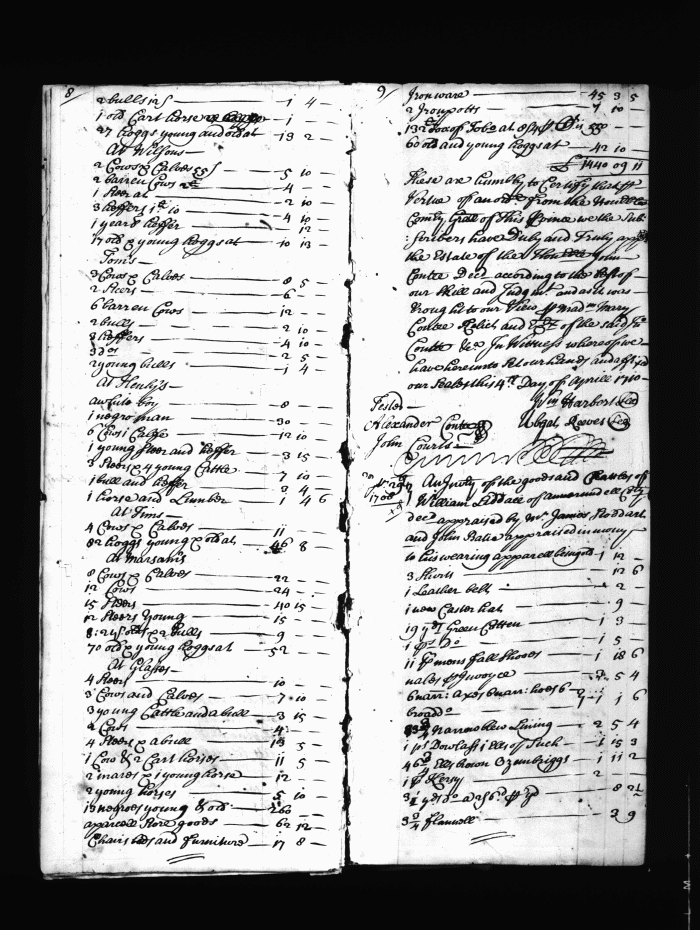 8
2 bulls 12/ — 1 4 —
1 old Cart horse — 1 — —
27 hoggs young and old at — 13 2 —
At Wilsons —
2 Cows & Calves 55/ — 5 10 —
2 barren Cows — 4 — —
1 Steer at — 2 10
3 heffers — 4 10
1 yeard heffer — 12
17 old & young hoggs at — 10 13 —
Tom's —
3 Cows & Calves — 8 5
2 Steers — 6 —
6 barren Cows — 12 —
2 bulls — 2 10
3 heffers — 4 10 —
3 do — 2 5 —
2 young bulls — 1 4 —
At Henly's —
a white boy — 8 —
1 negro man — 30 —
6 Cows 1 Calfe — 12 10 —
1 young Steer and heffer — 3 15
3 Steers & 4 young Cattle — 7 10 —
1 bull and heffer — 2 4 —
1 horse and Lumber — 1 4 6
At Tims —
4 Cows & Calves — 11 —
82 hoggs young & old at — 46 8
At Marsams
8 Cows & Calves — 22 —
12 Cows — 24 —
15 Steers — 40 15
12 Steers Young — 15 —
& 2 bulls — 9
70 old & young hoggs at — 52 —
At Glasses —
4 Steers — 10 —
3 Cows and Calves — 7 10
3 young Cattle and a bull — 3 15
2 Cows — 4 —
4 Steers & a bull — 13 5 —
1 Cow & 2 Cart horses — 11 5
2 mares & 1 young horse — 12 —
2 young horses — 5 10 —
13 negroes young & old — 260 —
a parcell Store goods — 62 12
Chairs beds and furniture — 17 8 —
9
Iron ware — 45 3 5
2 Iron potts — 7 10 —
60 old and young hoggs at — 42 10 —
£ 1440 09 11
These are humbly to Certify that
Vertue of an order from the
Comty Gral of this Province we the Sub
scribers have Duly and Truly
the Estate of the John
Contee Decd according to the best of
our Skill and Judgmt and as it was
brought to our View Madm Mary
Contee Relict and of the said Jno
Contee &c In Witness whereof we
have hereunto Set our hands and
our Seales this 4th Day of Aprill 1710 —
Testes Wm Harbert
Alexander Contee Ubgat Reeves
John Courts
1708 An Invty of the goods and Chattles of
William Leddale of annarundell
decd appraised by Mr James Stoddart
and John Batie appraised in money
to his wearing apparell being old 1 12 —
3 Shirts — 12 6
1 Leather belt — 2 —
1 new Caster hat — 9 —
19 yds Green Cotten — 1 3
1 ps Do — 1 5 —
11 pr mens fall Shooes — 1 18 6
nales — 7 5 4
6 narr: axes 6 narr: hoes 6 — 1 1 6
broad Do
narrow blew Lining — 2 5 4
1 ps Dowlass 1 Ells of Such — 1 15 3
46 Ells brown Ozenbriggs — 1 11 2
1 ps Kersy — 2
yds Do — 8 2
flannell — 3 9